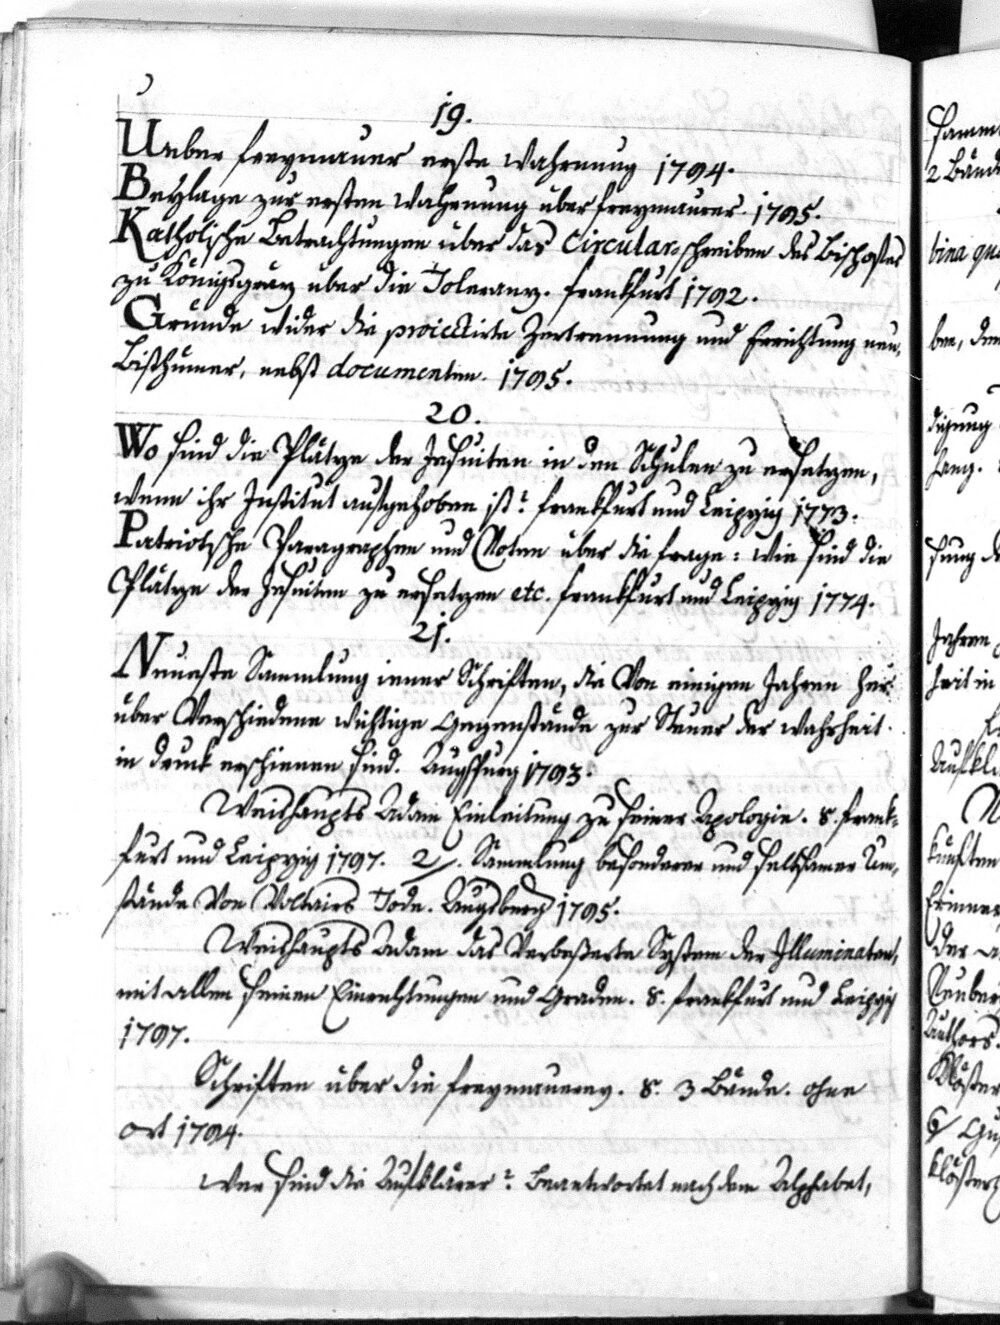 19.
Ueber freymaurer erste Wahrnung 1794.
Beylage zur ersten Wahrnung über freymaurer. 1795.
Katholische Betrachtungen über das Circular-schreiben des Bischofes
zu Königsgräz über die Toleranz. Frankfurt 1792.
Gründe wider die proiectirte Zertrennung und Errichtung neu-
Bisthümer, nebst documenten. 1795.
20.
Wo sind die Plätze der Jesuiten in den Schulen zu ersetzen,
wenn ihr Institut aufgehoben ist? Frankfurt und Leipzig 1773.
Patriotische Paragraphen und Noten über die frage: wie sind die
Plätze der Jesuiten zu ersetzen etc. Frankfurt und Leipzig 1774.
21.
Neueste Sammlung iener Schriften, die Von einigen Jahren her
über Verschiedene wichtige Gegenstände zur Steuer der Wahrheit
in druck erschienen sind. Augspurg 1793.
Weishaupts Adam Einleitung zu seiner Apologie. 8. Frank-
furt und Leipzig 1797. 2/. Sammlung besonderer und seltsamer Um-
stände Von Voltairs Tode. Augsberg 1795.
Weishaupts Adam das Verbeßerte System der Illuminaten,
mit allen seinen Einrichtungen und Graden. 8. Frankfurt und Leipzig
1797.
Schriften über die freymaurerey. 8. 3 Bände. ohne
ort 1794.
Wer sind die Aufklärer? Beantwortet nach dem Alphabet,
2 Bände
bina
ben, den
digung
sung
Jahren
heit in
künften
der
Authors.
Klöster
6/
klöster